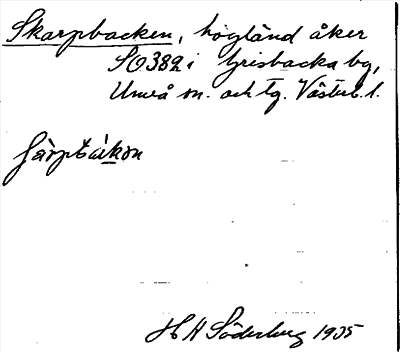 Skarpbacken, högländ åker
SO 382 i Grisbacka by,
Umeå sn. och tg. Västerb. l.
H H Söderberg 1935